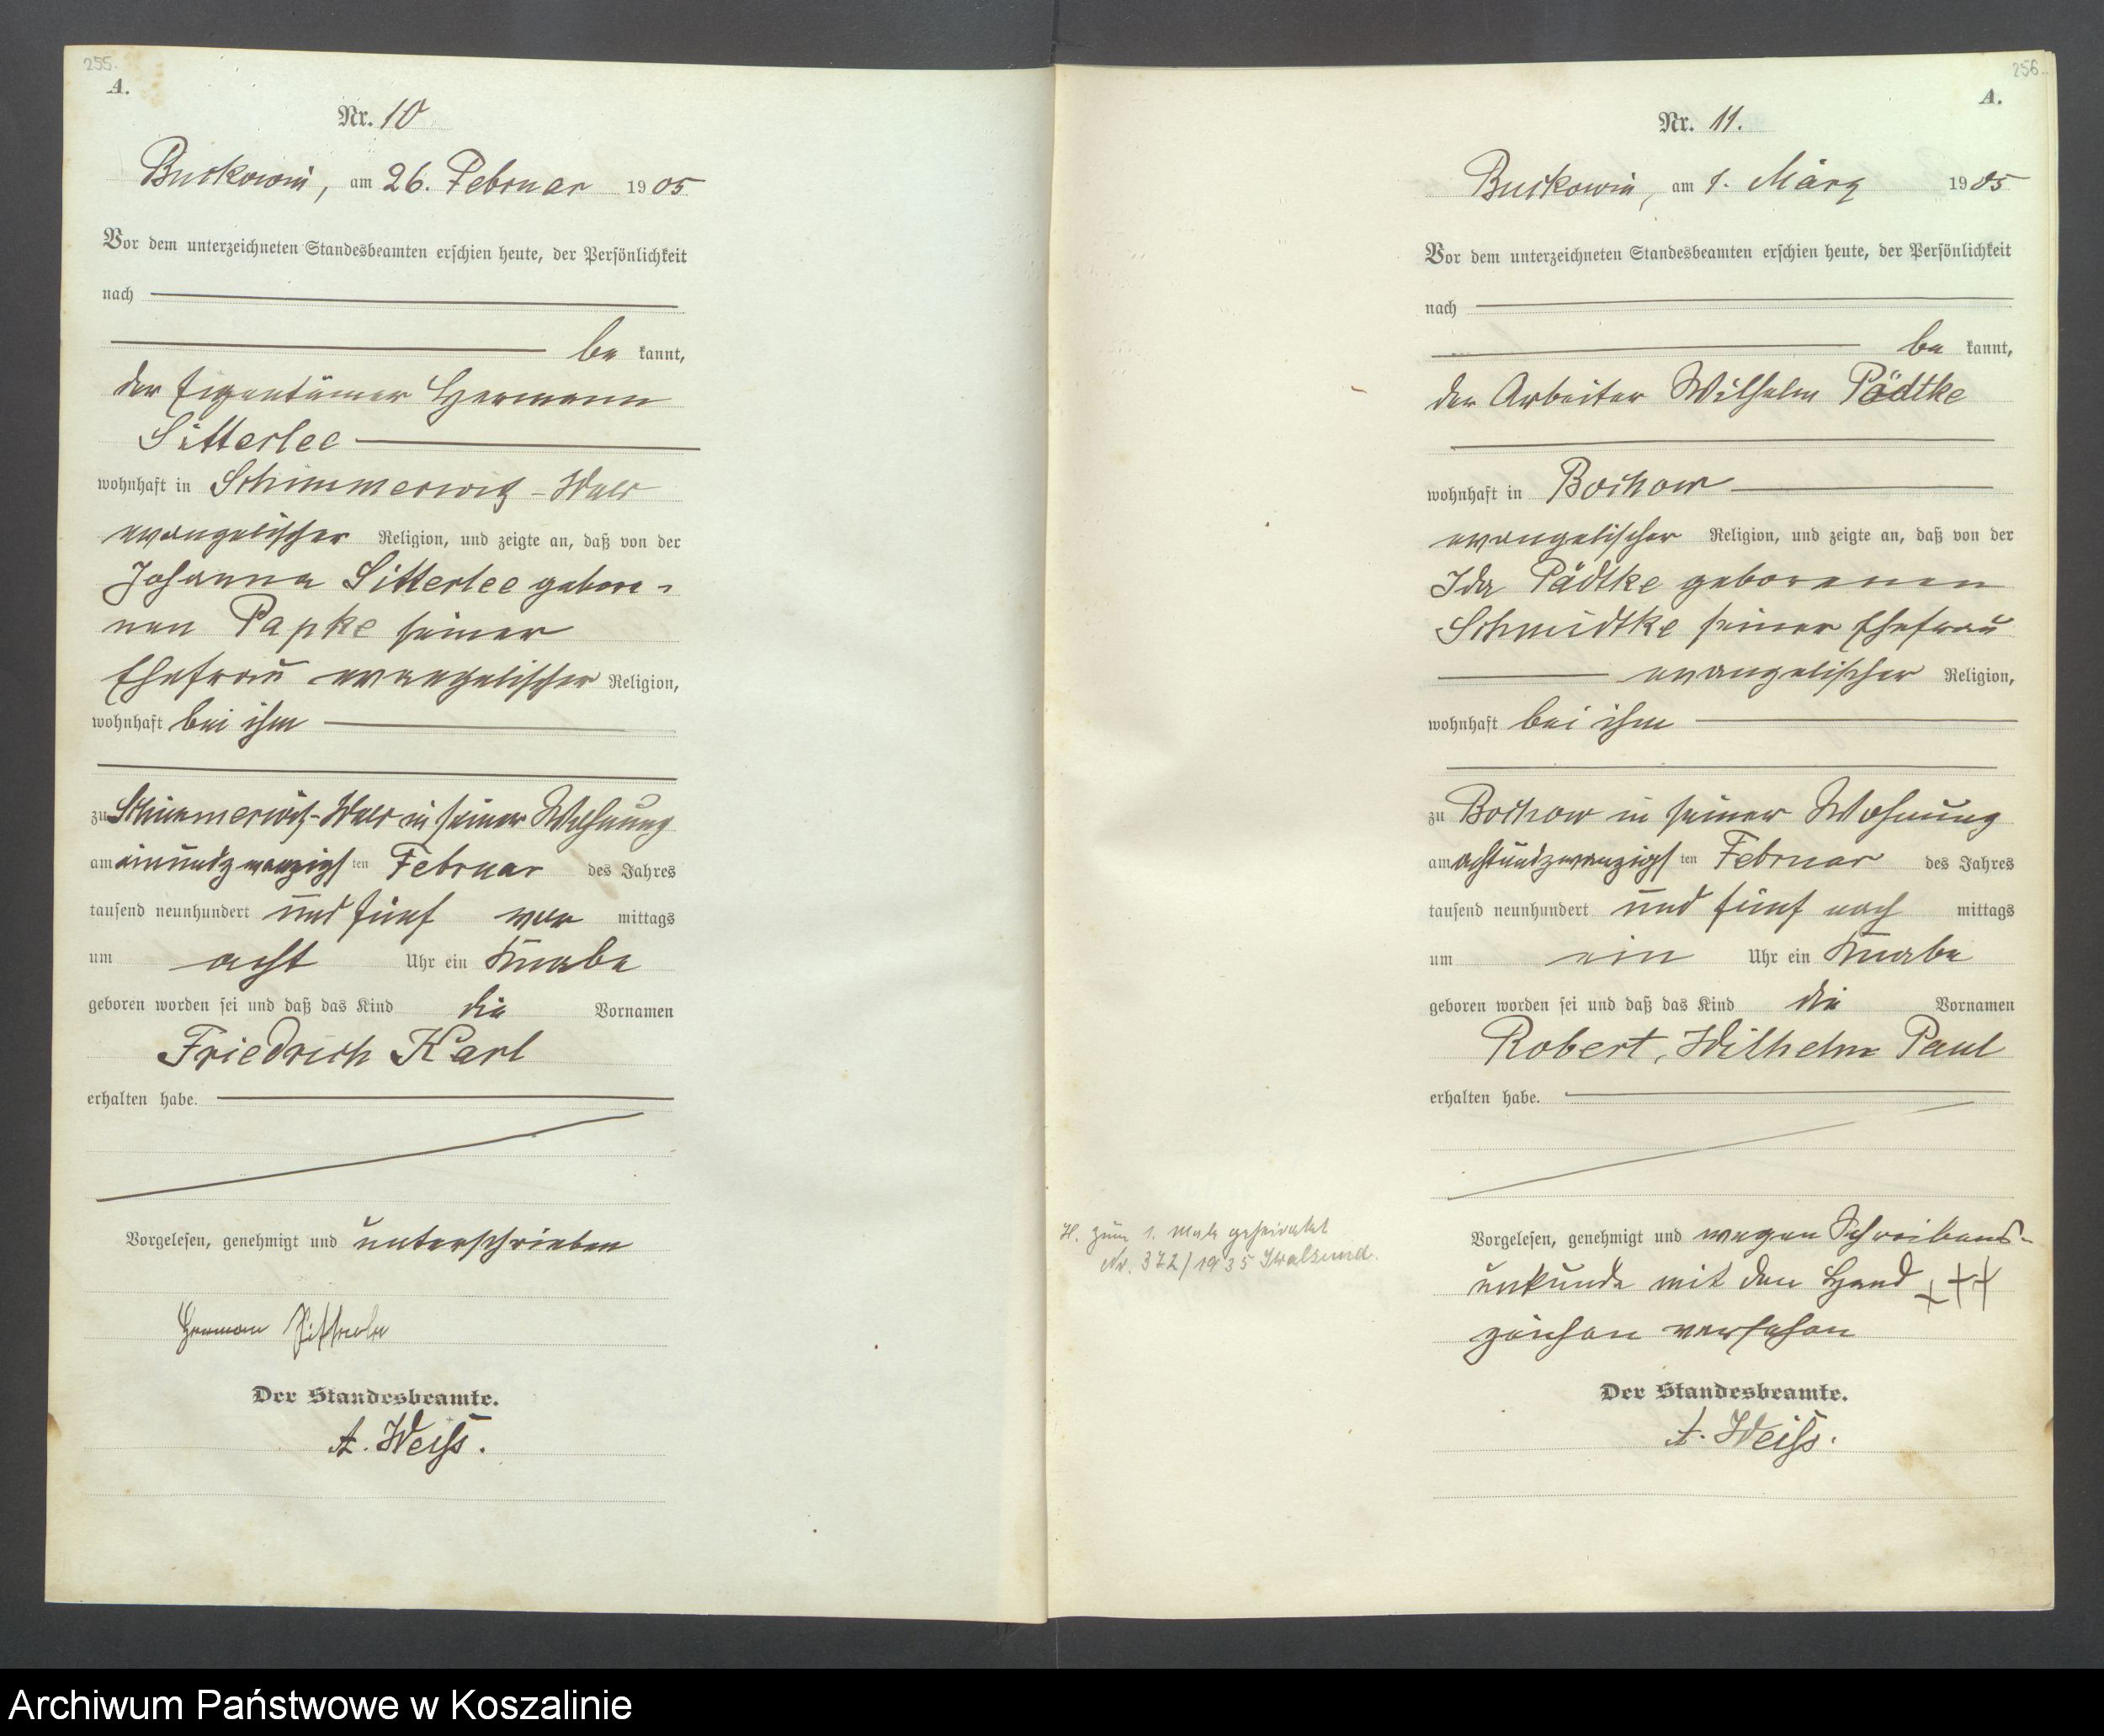 255.
A.
Nr. 10
Buckowin, am 26. Februar 1905
Vor dem unterzeichneten Standesbeamten erschien heute, der Persönlichkeit
nach
be kannt,
der Eigentümer Hermann
Sitterlee
wohnhaft in Schimmerwitz-Wald
evangelischer Religion, und zeigte an, daß von der
Johanna Sitterlee gebore-
nen Papke seiner
Ehefrau evangelischer Religion,
wohnhaft bei ihm
zu Schimmerwitz-Wald in seiner Wohnung
am einundzwanzigsten Februar des Jahres
tausend neunhundert und fünf vor mittags
um acht Uhr ein Knabe
geboren worden sei und daß das Kind die Vornamen
Friedrich Karl
erhalten habe.
Vorgelesen, genehmigt und unterschrieben
Herman
Der Standesbeamte.
A. Weiß.
256.
A.
Nr. 11.
Buckowin, am 1. März 1905
Vor dem unterzeichneten Standesbeamten erschien heute, der Persönlichkeit
nach
be kannt,
der Arbeiter Wilhelm Pädtke
wohnhaft in Bochow
evangelischer Religion, und zeigte an, daß von der
Ida Pädtke geborenen
Schmidtke seiner Ehefrau
evangelischer Religion,
wohnhaft bei ihm
zu Bochow in seiner Wohnung
am achtundzwanzigsten Februar des Jahres
tausend neunhundert und fünf nach mittags
um ein Uhr ein Knabe
geboren worden sei und daß das Kind die Vornamen
Robert, Wilhelm Paul
erhalten habe.
H. zum 1. Male geheiratet
Nr. 372/1935
Vorgelesen, genehmigt und wegen Schreibens-
unkunde mit den Hand +++
zeichen versehen
Der Standesbeamte.
A. Weiß.
Archiwum Państwowe w Koszalinie